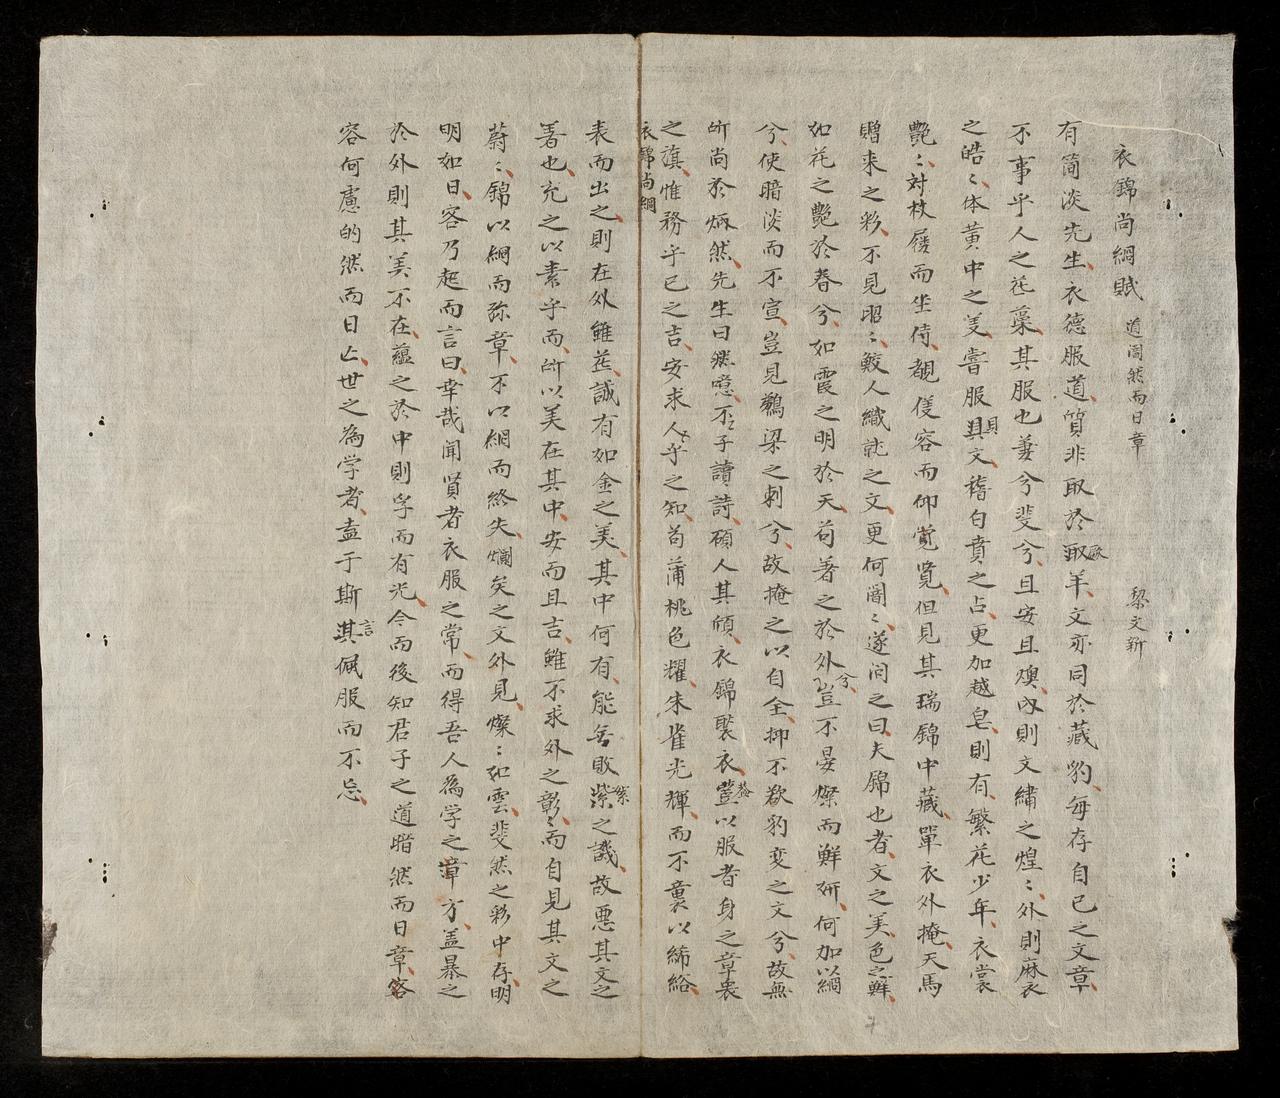 衣錦尚絅賦 道闇然而日章 黎文新
有簡淡先生衣德服道質非取於𣣔羊文亦同於藏豹每存自已之文章
不事乎人之花藻其服也萋兮斐兮且安且燠内則文繡之煌〻外則麻衣
之皓〻体黄中之美嘗服具文稽白賁之占更加越皂則有繁花少年衣裳
艷〻対杖屨而坐侍覩伎容而仰覧但見其瑞錦中藏單衣外掩天馬
贈来之彩不見昭〻鮫人織就之文更何闇〻遂问之曰夫錦也者文之美色之鮮
如花之艷於春兮如霞之明於天苟著之於外兮豈不晏燦而鮮妍何加以絅
兮使暗淡而不宣豈見鵜梁之刺兮故掩之以自全抑不欲豹变之文兮故無
所尚於炳然先生曰噫不子讀詩碩人其頎衣錦褧衣蓋以服者身之章裳
之旗惟務乎已之吉安求人乎之知苟蒲桃色耀朱雀光輝而不裹以絺綌
衣錦尚絅
表而出之則在外雖若誠有如金之美其中何有能無敗絮之譏故悪其文之
著也充之以素乎而所以美在其中安而且吉雖不求外之彰〻而自見其文之
蔚〻錦以絅而弥章不以絅而終失爛矣之文外見燦〻如雲斐然之彩中存明
明如日客乃起而言曰幸哉闻賢者衣服之常而得吾人為学之章方盖暴之
於外則其美不在蘊之於中則孚而有光今而後知君子之道暗然而日章客
容何慮的然而日亡世之為学者盍于斯言淇佩服而不忘